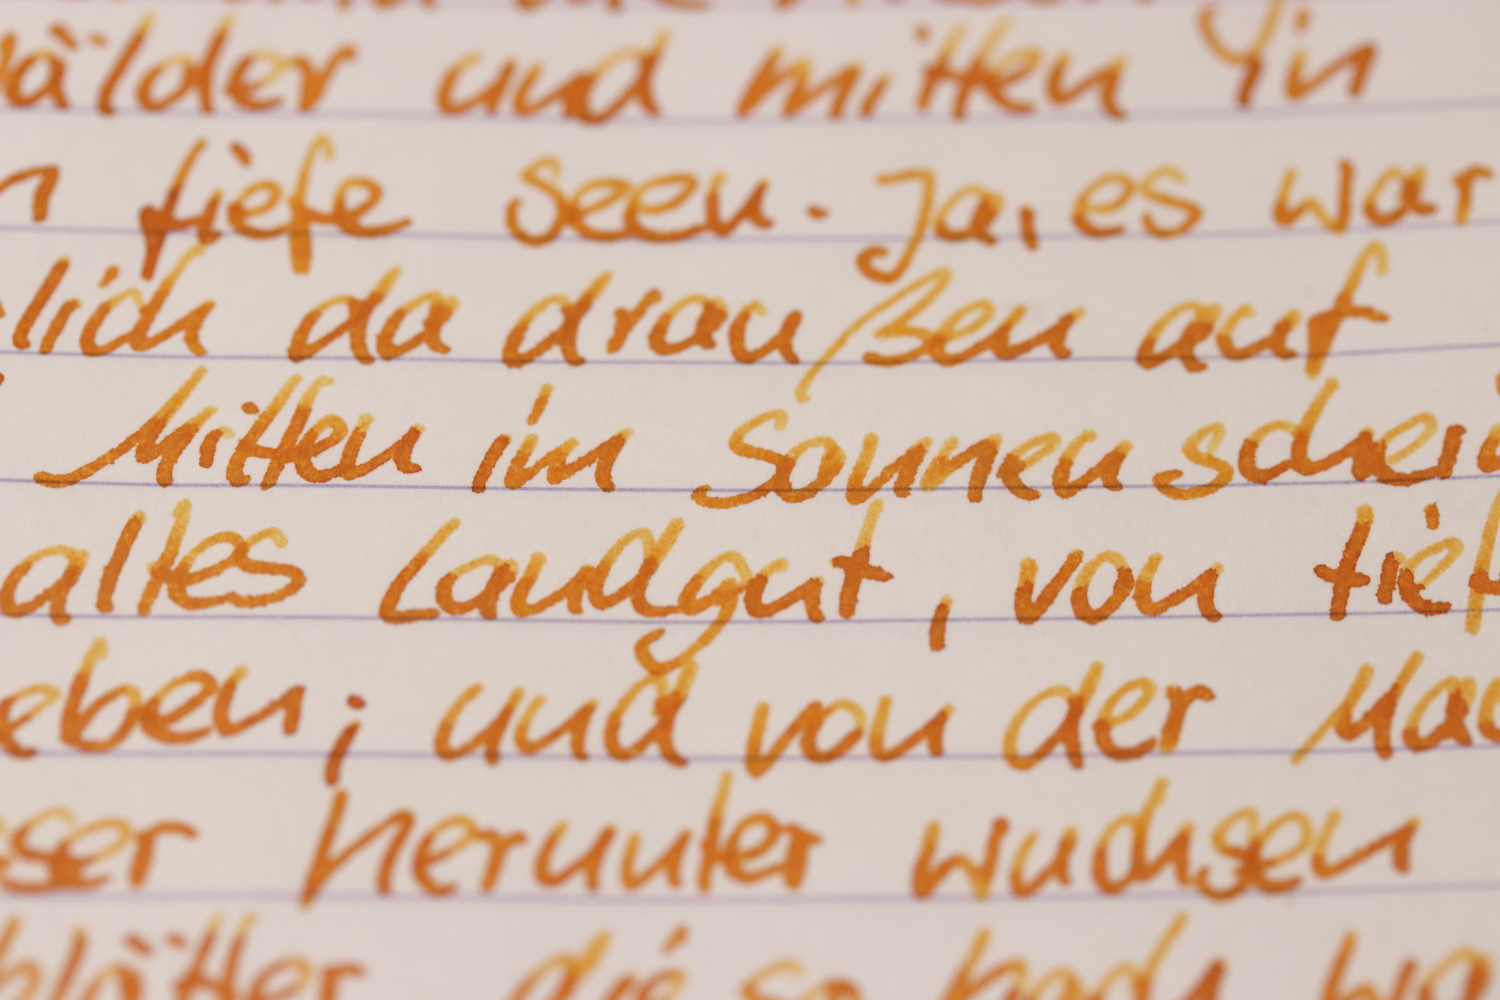 und die Wiesen
wälder und mitten in
n tiefe Seen. Ja, es war
lich da draußen auf
Mitten im Sonnenschein
altes Landgut, von tief
eben; und von der Mau
sser herunter wuchsen
blätter, die so hoch wa